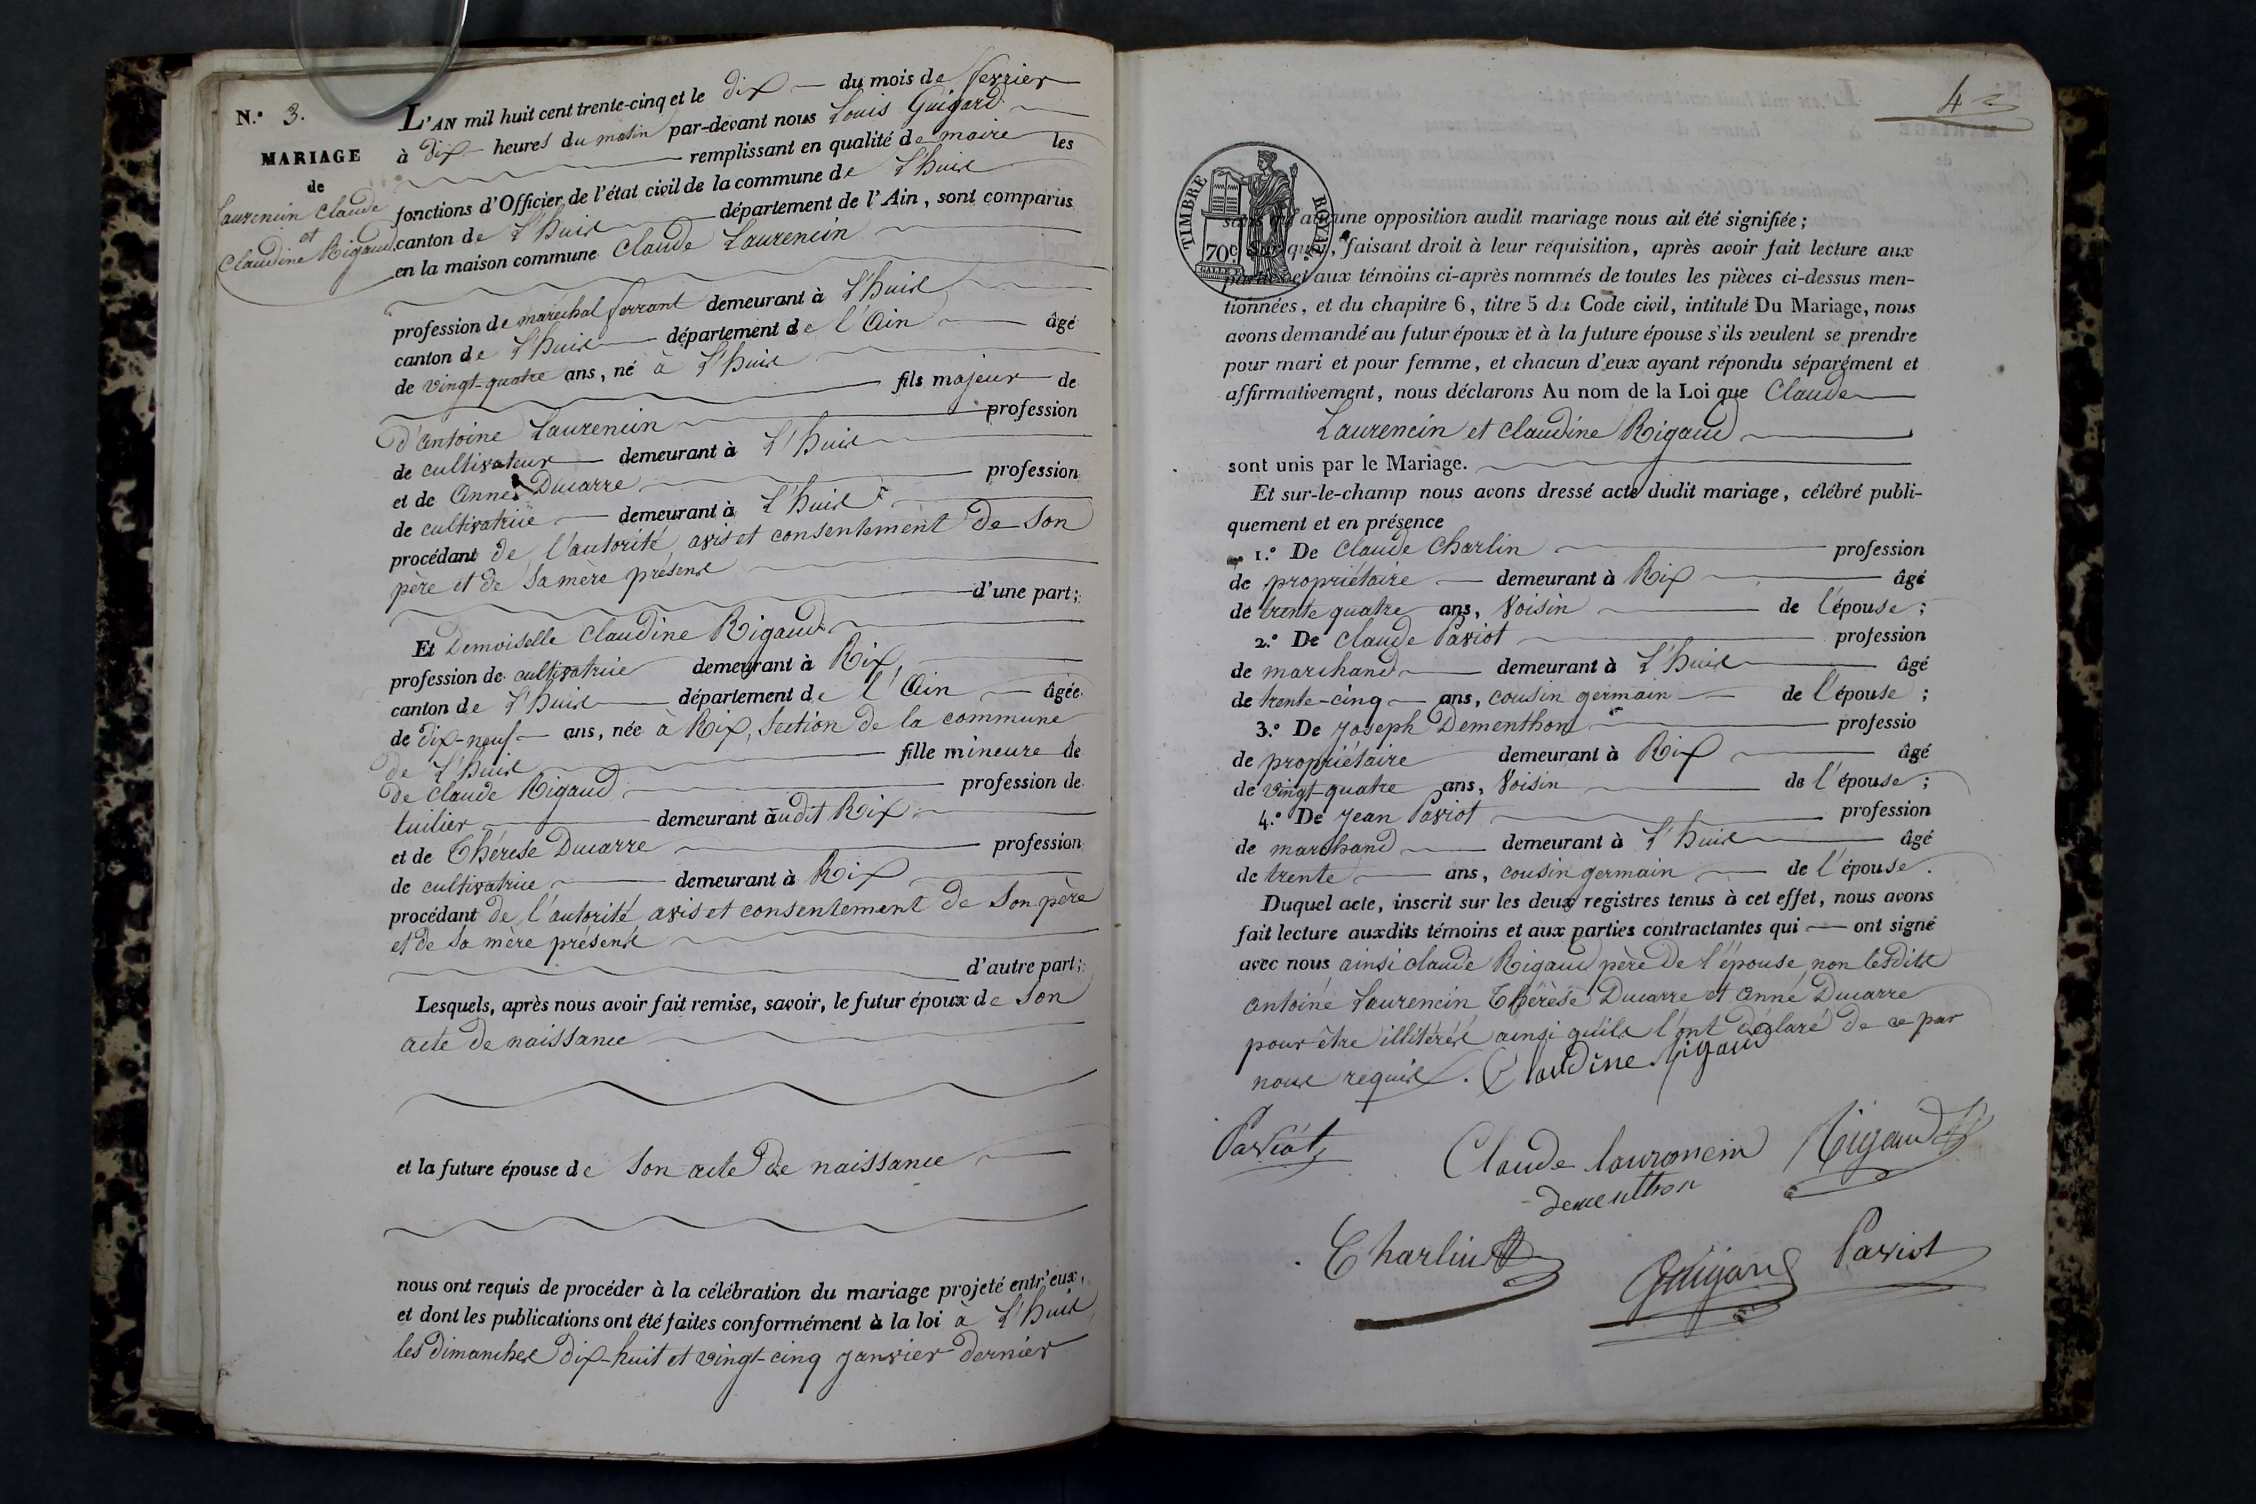 N.º 3.
MARIAGE
de
Laurencin Claude
et
Claudine Rigaud.
L'AN mil huit cent trente-cinq et le dix du mois de fevrier
à dix heures du matin par-devant nous Louis Guigard
remplissant en qualité de maire les
fonctions d'Officier de l'état civil de la commune de L'huis
canton de L'huis département de l'Ain, sont comparus
en la maison commune Claude Laurencin
profession de maréchal ferrant demeurant à L'huis
canton de L'huis département de l'Ain âgé
de vingt-quatre ans, né à L'huis
fils majeur de
d'antoine Laurencin profession
de cultivateur demeurant à L'huis
et de Anne Ducarre profession
de cultivatrice demeurant à L'huis
procédant de l'autorité, avis et consentement de son
père et de sa mère présens
d'une part;
Et Demoiselle Claudine Rigaud
profession de cultivatrice demeurant à Rix,
canton de L'huis département de l'Ain âgée
de dix-neuf ans, née à Rix, Section de la commune
de L'huis fille mineure de
de claude Rigaud profession de
tuilier demeurant audit Rix
et de Thérèse Ducarre profession
de cultivatrice demeurant à Rix
procédant de l'autorité avis et consentement de son père
et de sa mère présens
d'autre part;
Lesquels, après nous avoir fait remise, savoir, le futur époux de son
acte de naissance
et la future épouse de son acte de naissance
nous ont requis de procéder à la célébration du mariage projeté entr'eux,
et dont les publications ont été faites conformément à la loi à L'huis
les dimanches dix-huit et vingt-cinq janvier dernier
4
TIMBRE ROYAL
70c
aucune opposition audit mariage nous ait été signifiée;
faisant droit à leur réquisition, après avoir fait lecture aux
parties et aux témoins ci-après nommés de toutes les pièces ci-dessus men-
tionnées, et du chapitre 6, titre 5 du Code civil, intitulé Du Mariage, nous
avons demandé au futur époux et à la future épouse s'ils veulent se prendre
pour mari et pour femme, et chacun d'eux ayant répondu séparément et
affirmativement, nous déclarons Au nom de la Loi que Claude
Laurencin et claudine Rigaud
sont unis par le Mariage.
Et sur-le-champ nous avons dressé acte dudit mariage, célébré publi-
quement et en présence
1.º De Claude Charlin profession
de propriétaire demeurant à Rix âgé
de trente quatre ans, Voisin de l'épouse;
2.º De Claude Paviot profession
de marchand demeurant à L'huis âgé
de trente-cinq ans, cousin germain de l'épouse;
3.º De Joseph Dementhon professio
de propriétaire demeurant à Rix âgé
de vingt-quatre ans, Voisin de l'épouse;
4.º De Jean Paviot profession
de marchand demeurant à L'huis âgé
de trente ans, cousin germain de l'épouse.
Duquel acte, inscrit sur les deux registres tenus à cet effet, nous avons
fait lecture auxdits témoins et aux parties contractantes qui ont signé
avec nous ainsi claude Rigaud père de l'épouse, non lesdits
antoine Laurencin Thérèse Ducarre et anne Ducarre
pour être illitérés ainsi qu'ils l'ont déclaré de ce par
nous requis. Claudine Rigaud
Paviot
Claude laurancin
Rigaud
dementhon
Charlin
Guigard
Paviot